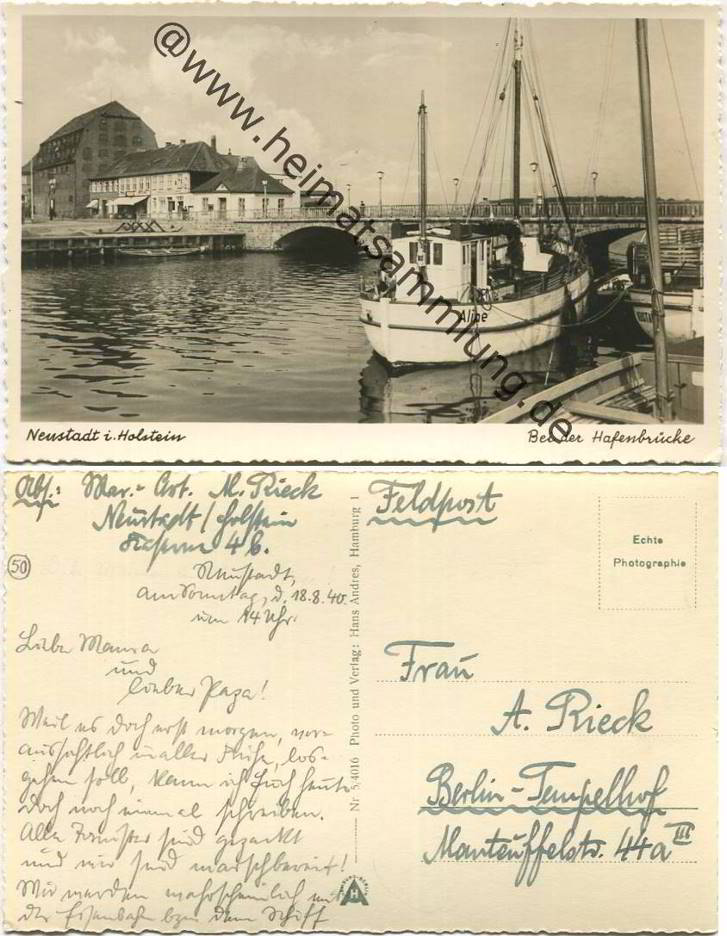 @www.heimatsammlung.de
Aline
Neustadt i. Holstein
Bei der Hafenbrücke
Abs.: Mar.-Art. M. Rieck
Neustadt / Holstein
Kaserne 4 b.
50
Neustadt,
am Sonntag, d. 18.8.40.
um 14 Uhr.
Liebe Mama
und
lieber Papa!
Weil es doch erst morgen, vor-
aussichtlich in aller Frühe, los-
gehen soll, kann ich Euch heute
doch noch einmal schreiben.
Alle Tornister sind gepackt
und wir sind marschbereit!
Wir werden wahrscheinlich mit
der Eisenbahn bzw. dem Schiff
Nr. 5/4016 Photo und Verlag: Hans Andres, Hamburg 1
H
Feldpost
Echte
Photographie
Frau
A. Rieck
Berlin-Tempelhof
Manteuffelstr. 44a III